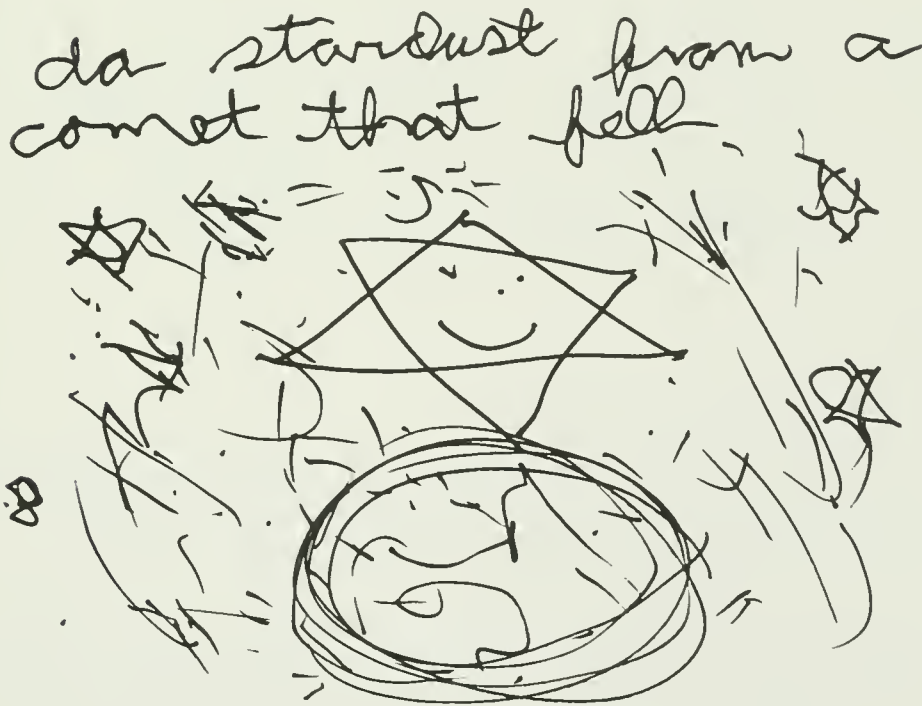 da stardust from a
comet that fell